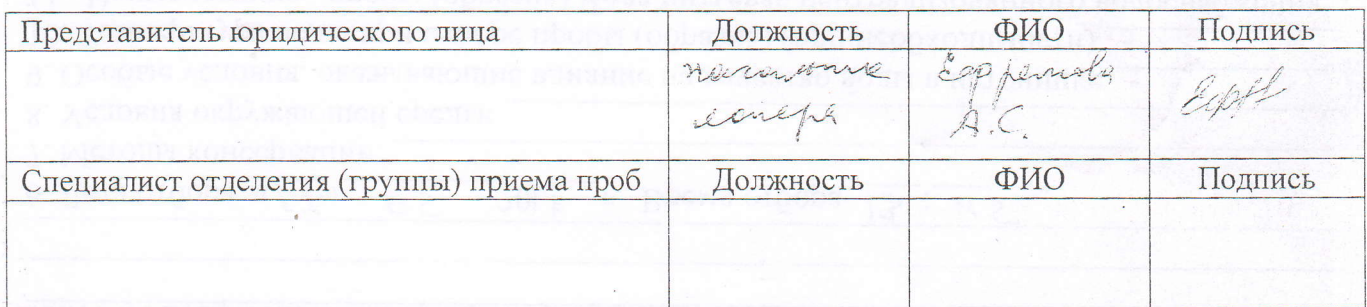 Представитель юридического лица Должность ФИО Подпись
начальник Ефремова
лагеря А.С.
Специалист отделения (группы) приема проб Должность ФИО Подпись